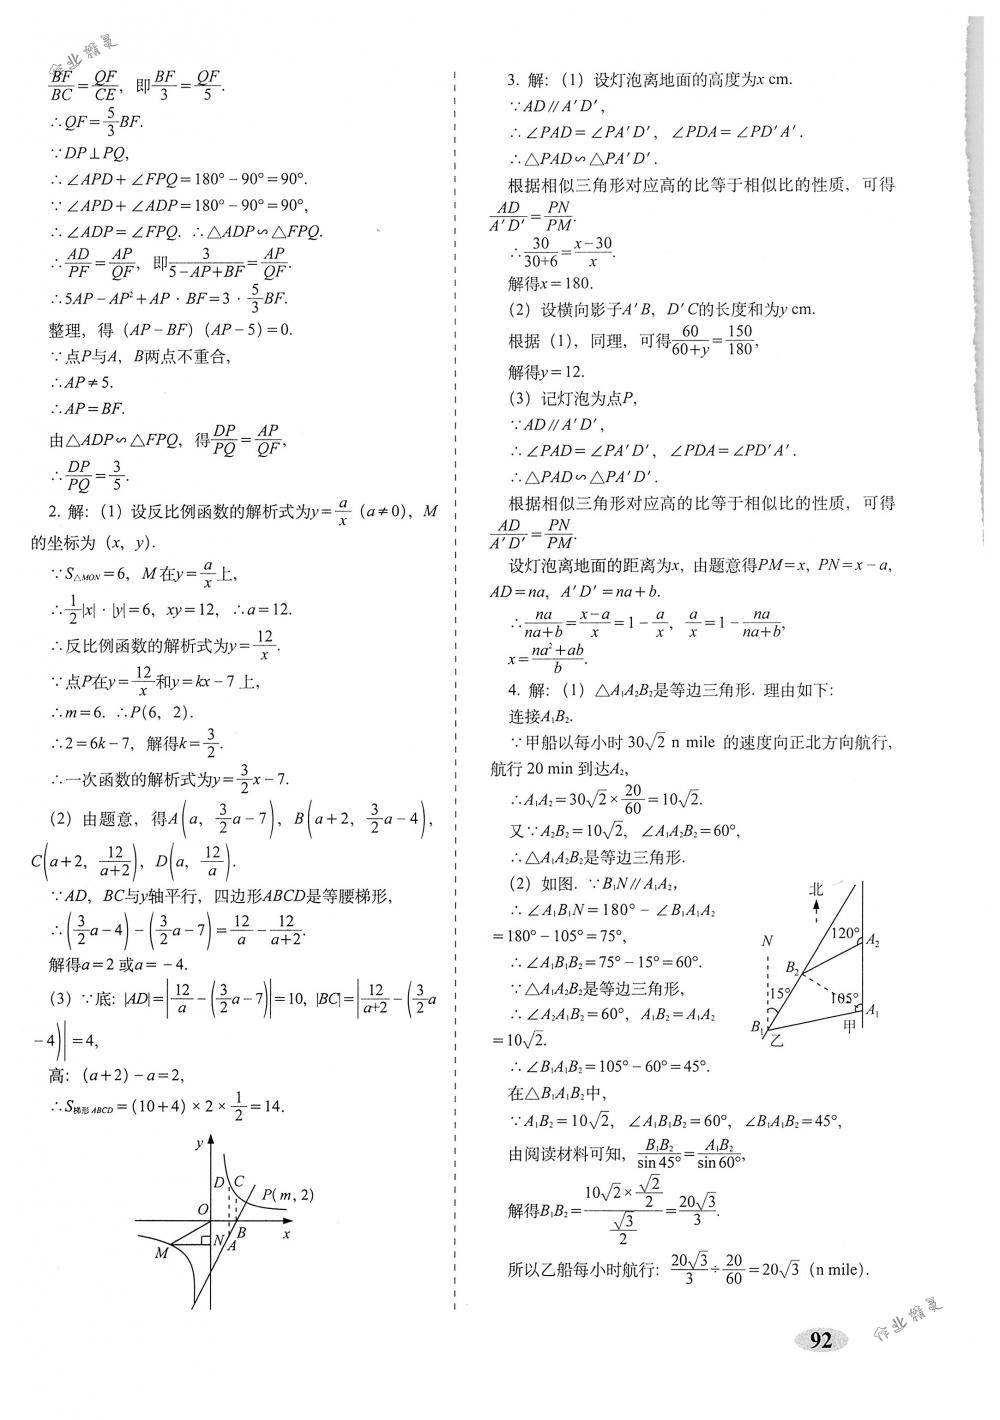 作业精灵
BF/BC=QF/CE，即BF/3=QF/5.
∴QF=5/3BF.
∵DP⊥PQ,
∴∠APD+∠FPQ=180°-90°=90°.
∵∠APD+∠ADP=180°-90°=90°,
∴∠ADP=∠FPQ. ∴△ADP∽△FPQ.
∴AD/PF=AP/QF，即3/(5-AP+BF)=AP/QF.
∴5AP-AP²+AP·BF=3·5/3BF.
整理，得（AP-BF）（AP-5）=0.
∵点P与A，B两点不重合，
∴AP≠5.
∴AP=BF.
由△ADP∽△FPQ，得DP/PQ=AP/QF,
∴DP/PQ=3/5.
2. 解:（1）设反比例函数的解析式为y=a/x（a≠0），M
的坐标为（x，y）.
∵S△MON=6，M在y=a/x上，
∴1/2|x|·|y|=6，xy=12，∴a=12.
∴反比例函数的解析式为y=12/x.
∵点P在y=12/x和y=kx-7上，
∴m=6. ∴P(6，2).
∴2=6k-7，解得k=3/2.
∴一次函数的解析式为y=3/2x-7.
（2）由题意，得A(a，3/2a-7)，B(a+2，3/2a-4)，
C(a+2，12/(a+2))，D(a，12/a).
∵AD，BC与y轴平行，四边形ABCD是等腰梯形，
∴(3/2a-4)-(3/2a-7)=12/a-12/(a+2).
解得a=2或a=-4.
（3）∵底: |AD|=|12/a-(3/2a-7)|=10，|BC|=|12/(a+2)-(3/2a
-4)|=4,
高:（a+2）-a=2,
∴S梯形ABCD=(10+4)×2×1/2=14.
y
D C
P(m,2)
O
B x
M N A
3. 解:（1）设灯泡离地面的高度为x cm.
∵AD∥A′D′，
∴∠PAD=∠PA′D′，∠PDA=∠PD′A′.
∴△PAD∽△PA′D′.
根据相似三角形对应高的比等于相似比的性质，可得
AD/A′D′=PN/PM.
∴30/(30+6)=(x-30)/x.
解得x=180.
（2）设横向影子A′B，D′C的长度和为y cm.
根据（1），同理，可得60/(60+y)=150/180,
解得y=12.
（3）记灯泡为点P,
∵AD∥A′D′，
∴∠PAD=∠PA′D′，∠PDA=∠PD′A′.
∴△PAD∽△PA′D′.
根据相似三角形对应高的比等于相似比的性质，可得
AD/A′D′=PN/PM.
设灯泡离地面的距离为x，由题意得PM=x，PN=x-a，
AD=na，A′D′=na+b.
∴na/(na+b)=(x-a)/x=1-a/x，a/x=1-na/(na+b),
x=(na²+ab)/b.
4. 解:（1）△A₁A₂B₂是等边三角形. 理由如下:
连接A₁B₂.
∵甲船以每小时30√2 n mile 的速度向正北方向航行,
航行20 min到达A₂,
∴A₁A₂=30√2×20/60=10√2.
又∵A₂B₂=10√2，∠A₁A₂B₂=60°,
∴△A₁A₂B₂是等边三角形.
（2）如图. ∵B₁N∥A₁A₂，
∴∠A₁B₁N=180°-∠B₁A₁A₂
=180°-105°=75°,
∴∠A₁B₁B₂=75°-15°=60°.
∵△A₁A₂B₂是等边三角形,
∴∠A₂A₁B₂=60°，A₁B₂=A₁A₂
=10√2.
∴∠B₁A₁B₂=105°-60°=45°.
在△B₁A₁B₂中,
∵A₁B₂=10√2，∠A₁B₁B₂=60°，∠B₁A₁B₂=45°,
由阅读材料可知，B₁B₂/sin 45°=A₁B₂/sin 60°,
解得B₁B₂=(10√2×√2/2)/(√3/2)=20√3/3.
所以乙船每小时航行: 20√3/3÷20/60=20√3（n mile）.
北
N 120° A₂
B₂
15° 105° A₁
B₁ 乙 甲
92
作业精灵